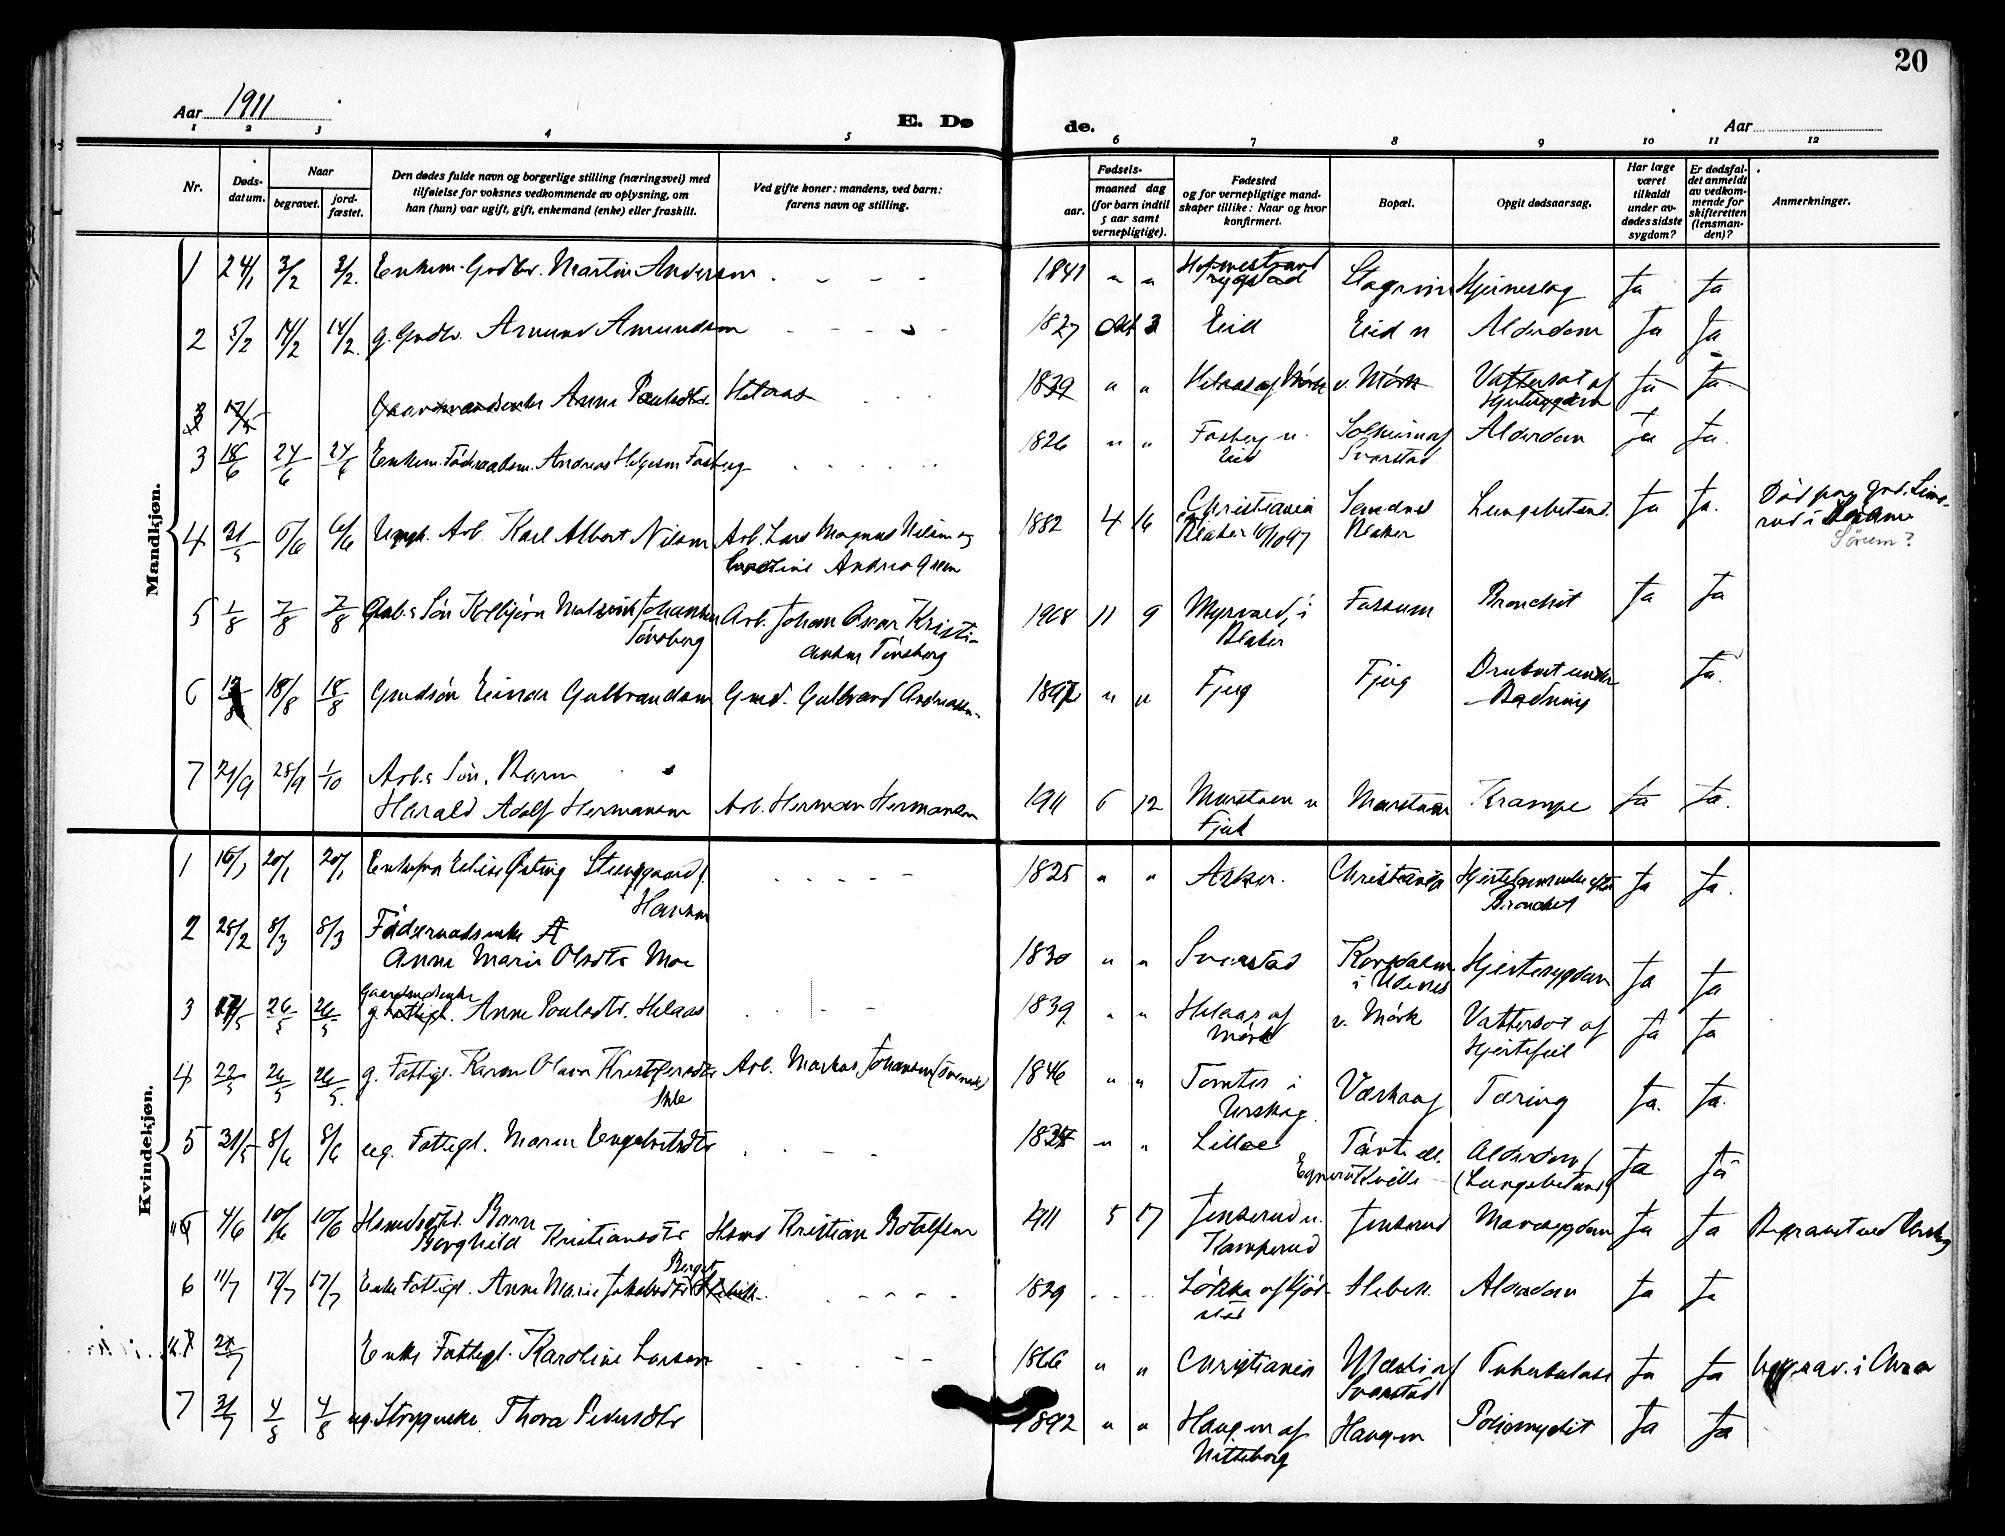 20
Aar 1911
E. Dø
de.
Aar
1 2 3 4 5 6 7 8 9 10 11 12
Nr.
Døds-
datum.
Naar
begravet.
jord-
fæstet.
Den dødes fulde navn og borgerlige stilling (næringsvei) med
tilføielse for voksnes vedkommende av oplysning, om
han (hun) var ugift, gift, enkemand (enke) eller fraskilt.
Ved gifte koner: mandens, ved barn:
farens navn og stilling.
Fødsels-
aar.
maaned dag
(for barn indtil
5 aar samt
vernepligtige).
Fødested
og for vernepligtige mand-
skaper tillike: Naar og hvor
konfirmert.
Bopæl.
Opgit dødsaarsag.
Har læge
været
tilkaldt
under av-
dødes sidste
sygdom?
Er dødsfal-
det anmeldt
av vedkom-
mende for
skifteretten
(lensman-
den)?
Anmerkninger.
Mandkjøn.
1 24/1 3/2 3/2. Enkem. Gndbr. Martin Anderssen - - - - 1841 " " Holmestrand Stagrim Hjerneslag Ja Ja
2 5/2 14/2 14/2. g. Gndbr. Amund Amundsen - - - - 1827 Okt 3 Eid Eid n Alderdom Ja Ja
3 17/5 Gaardmandsenke Anne Paulsdtr. Helaas 1839 " " Helaas af Mørk v. Mørk Vattersot af Ja Ja
Hjertesygdom
3 18/6 24/6 24/6 Enkem. Föderaadsm. Andreas Helgesen Fosberg 1826 " " Fosberg u. Solheim af Alderdom Ja Ja.
Eid Svarstad
4 31/5 6/6 6/6 Ungk. Arb. Karl Albert Nilsen Arb. Lars Magnus Nilsen og 1882 4 16 Christiania Sandnes Lungebetænd. Ja Ja. Död paa
Andrea Blaker 10/10 97 Blaker
Sørum?
5 1/8 7/8 7/8 Arb.s Søn Kolbjørn Johansen Arb. Johan Oscar Kristi- 1908 11 9 Myrvold, i Fossum Bronchit Ja Ja
Tönsberg ansen Tönsberg Blaker
6 12/8 18/8 18/8 Gmdsøn Einar Gulbrandsen Gmd. Gulbrand Andreassen 1897 " " Fjug Fjug Druknet under Ja.
Badning
7 21/9 28/9 1/10 Arb.s Søn, Barn
Harald Adolf Hermansen Arb. Herman Hermansen 1911 6 12 Marstuen u Marstuen Krampe Ja Ja.
Kvindekjøn.
1 16/1 20/1 20/1 Enkefru Elise Østing Steensgaard f. - - - - 1825 " " Asker. Christiania Ja Ja.
Hansen Bronchit
2 28/2 8/3 8/3 Föderaadsenke
Anne Marie Olsdtr Moe 1830 " " Svarstad Korsdalen Hjertesygdom Ja Ja
i Udenes
3 17/5 26/5 26/5 Gaardmdsenke
Anne Paulsdtr. Helaas 1839 " " Helaas af v. Mørk Vattersot af Ja Ja
Mørk Hjertefeil
4 22/5 26/5 26/5. g. Fattigl. Karen Olava Kristofersdtr Arb. Markus Johansen (svensk) 1846 " " Tomter i Værhaug Tæring Ja. Ja.
Urskog.
5 31/5 8/6 8/6 ug. Fattigl. Maren Engebretsdtr - - - " " Lilloe Alderdom Ja Ja
(Lungebetænd)
4/6 10/6 10/6 Barn
Borghild Kristiansdtr Hsmd Kristian Botolfsen 1911 5 17 Jenserud u. Jenserud Mavesygdom Ja Ja Begravet ved Urskog
Kamperud
6 11/7 17/7 17/7 Enke Fattigl. Anne Marie Jakobsdtr Berget - - - - 1829 - - - Lökka af Hjöl- Slebek Alderdom Ja Ja
7 Enke Fattigl. Karoline Larsen - - - 1866 " " Christiania Tuberkulose Ja Ja begrav. i Chra
Svarstad
7 31/7 4/8 4/8 ug. Strygerske Thora Pedersdtr 1892 " " Haugen af Haugen Poliomyelit Ja Ja
Nitteberg